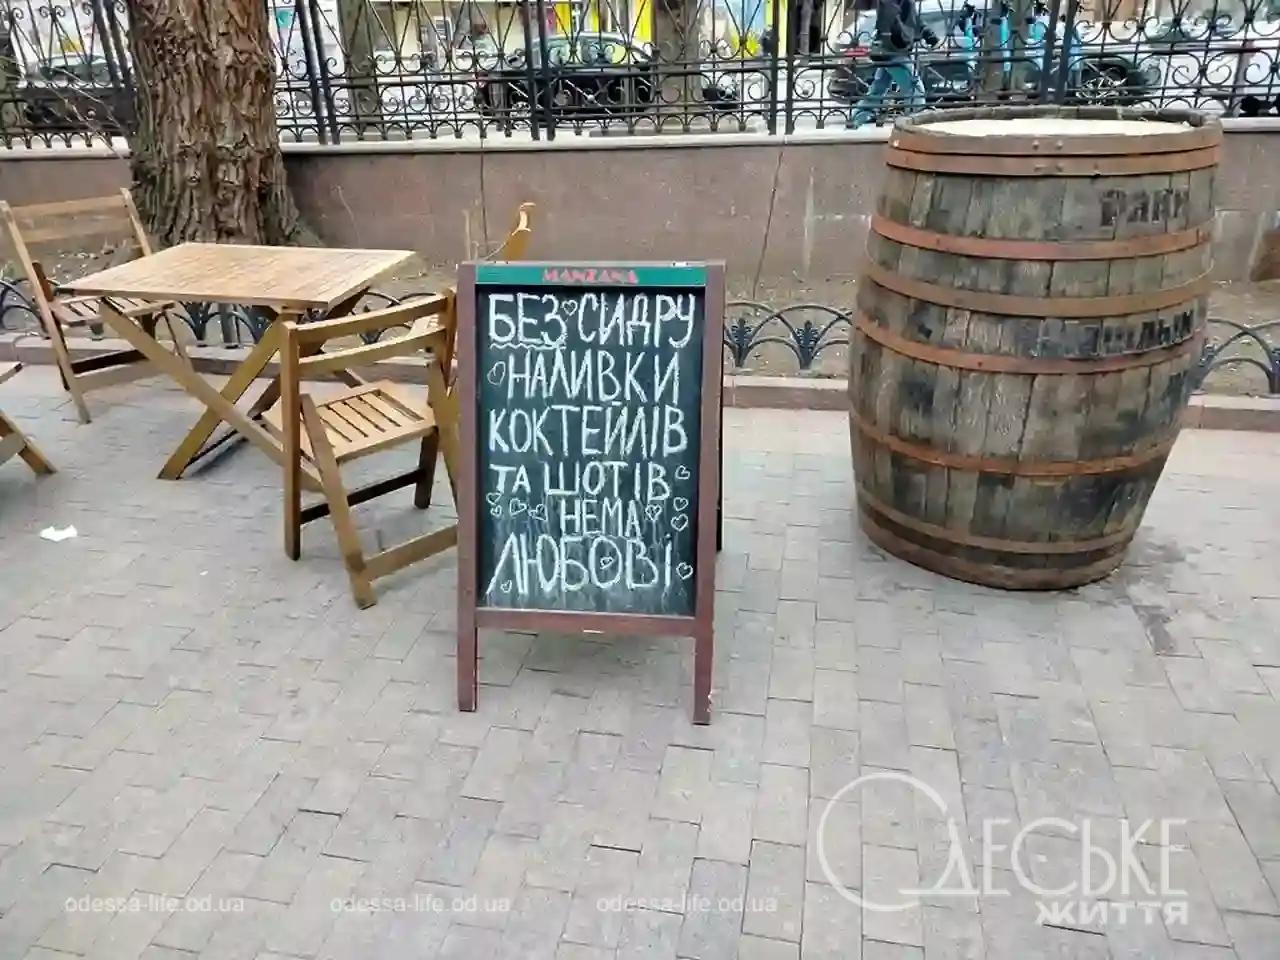 MANZANA
БЕЗ СИДРУ
НАЛИВКИ
КОКТЕЙЛІВ
ТА ШОТІВ
НЕМА
ЛЮБОВІ
ОДЕСЬКЕ
ЖИТТЯ
odessa-life.od.ua odessa-life.od.ua odessa-life.od.ua